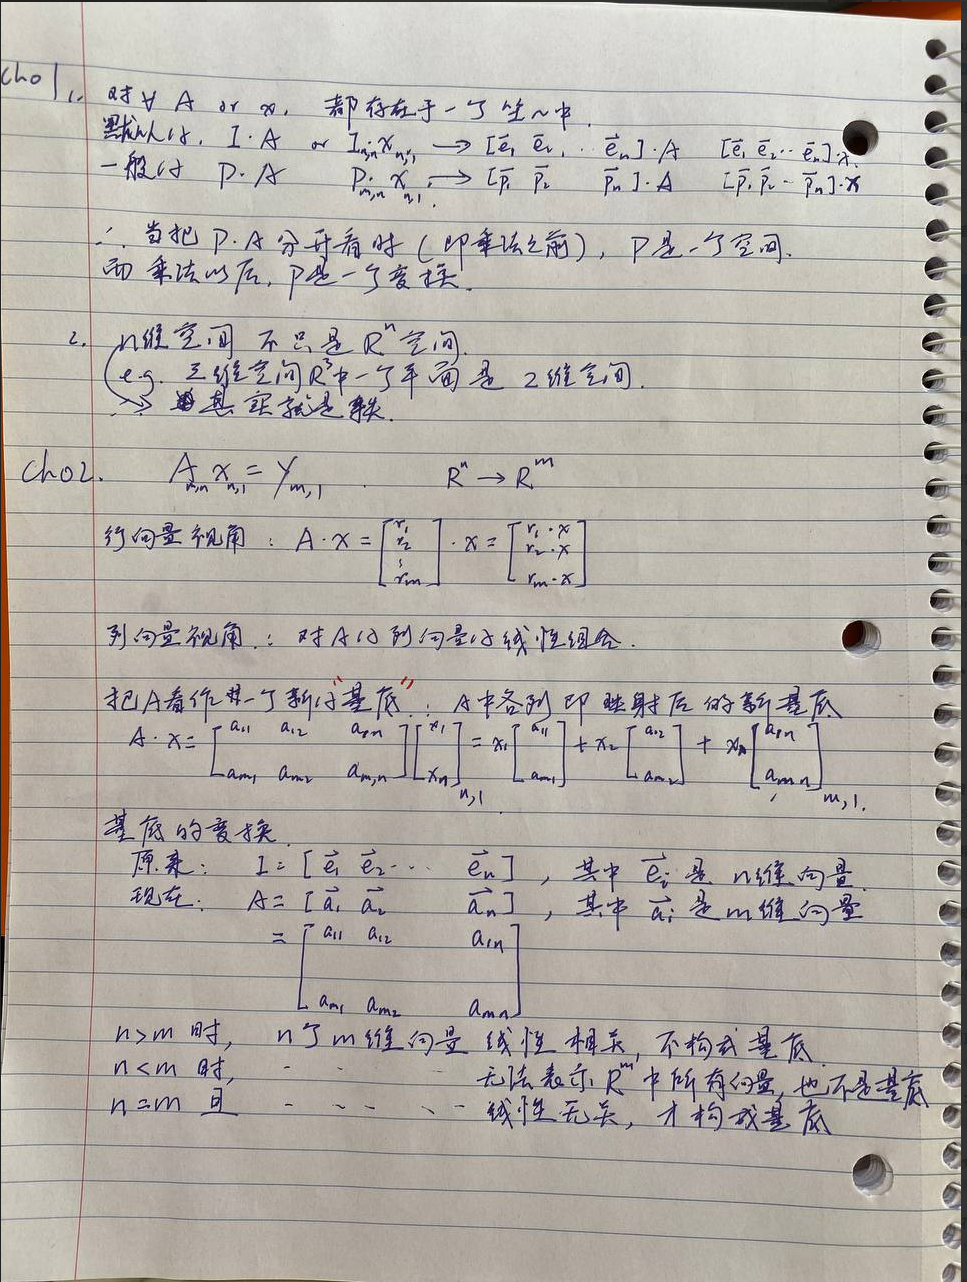 Ch01.
1. 对∀ A or x, 都存在于一个坐~中.
默认的, I·A or Iₙ,ₙ·xₙ,₁ → [e⃗₁ e⃗₂ ... e⃗ₙ]·A [e⃗₁ e⃗₂ ... e⃗ₙ]·x
一般的 P·A Pₘ,ₙ·xₙ,₁ → [p⃗₁ p⃗₂ p⃗ₙ]·A [p⃗₁ p⃗₂ ... p⃗ₙ]·x
∴ 当把 P·A 分开看时 (即乘法之前), P是一个空间.
而乘法以后, P是一个变换.
2. n维空间 不只是 Rⁿ 空间.
e.g. 三维空间R³中一个平面是 2维空间.
其实就是秩.
Ch02. Aₘ,ₙ xₙ,₁ = yₘ,₁ . Rⁿ → Rᵐ
行向量视角: A·x = [r₁ r₂ ⋮ rₘ]·x = [r₁·x r₂·x rₘ·x]
列向量视角: 对A的列向量的线性组合.
把A看作一个新的"基底": A中各列即映射后的新基底
A·x = [a₁₁ a₁₂ a₁ₙ aₘ₁ aₘ₂ aₘ,ₙ][x₁ xₙ]ₙ,₁ = x₁[a₁₁ aₘ₁] + x₂[a₁₂ aₘ₂] + xₙ[a₁ₙ aₘₙ]ₘ,₁.
基底的变换.
原来: I = [e⃗₁ e⃗₂ ... e⃗ₙ], 其中 e⃗ᵢ 是 n维向量.
现在: A = [a⃗₁ a⃗₂ a⃗ₙ], 其中 a⃗ᵢ 是 m维向量
= [a₁₁ a₁₂ a₁ₙ aₘ₁ aₘ₂ aₘₙ]
n>m 时, n个m维向量 线性相关, 不构成基底.
n<m 时, - - - - 无法表示 Rᵐ 中所有向量, 也不是基底
n=m 且 - - - - - 线性无关, 才构成基底